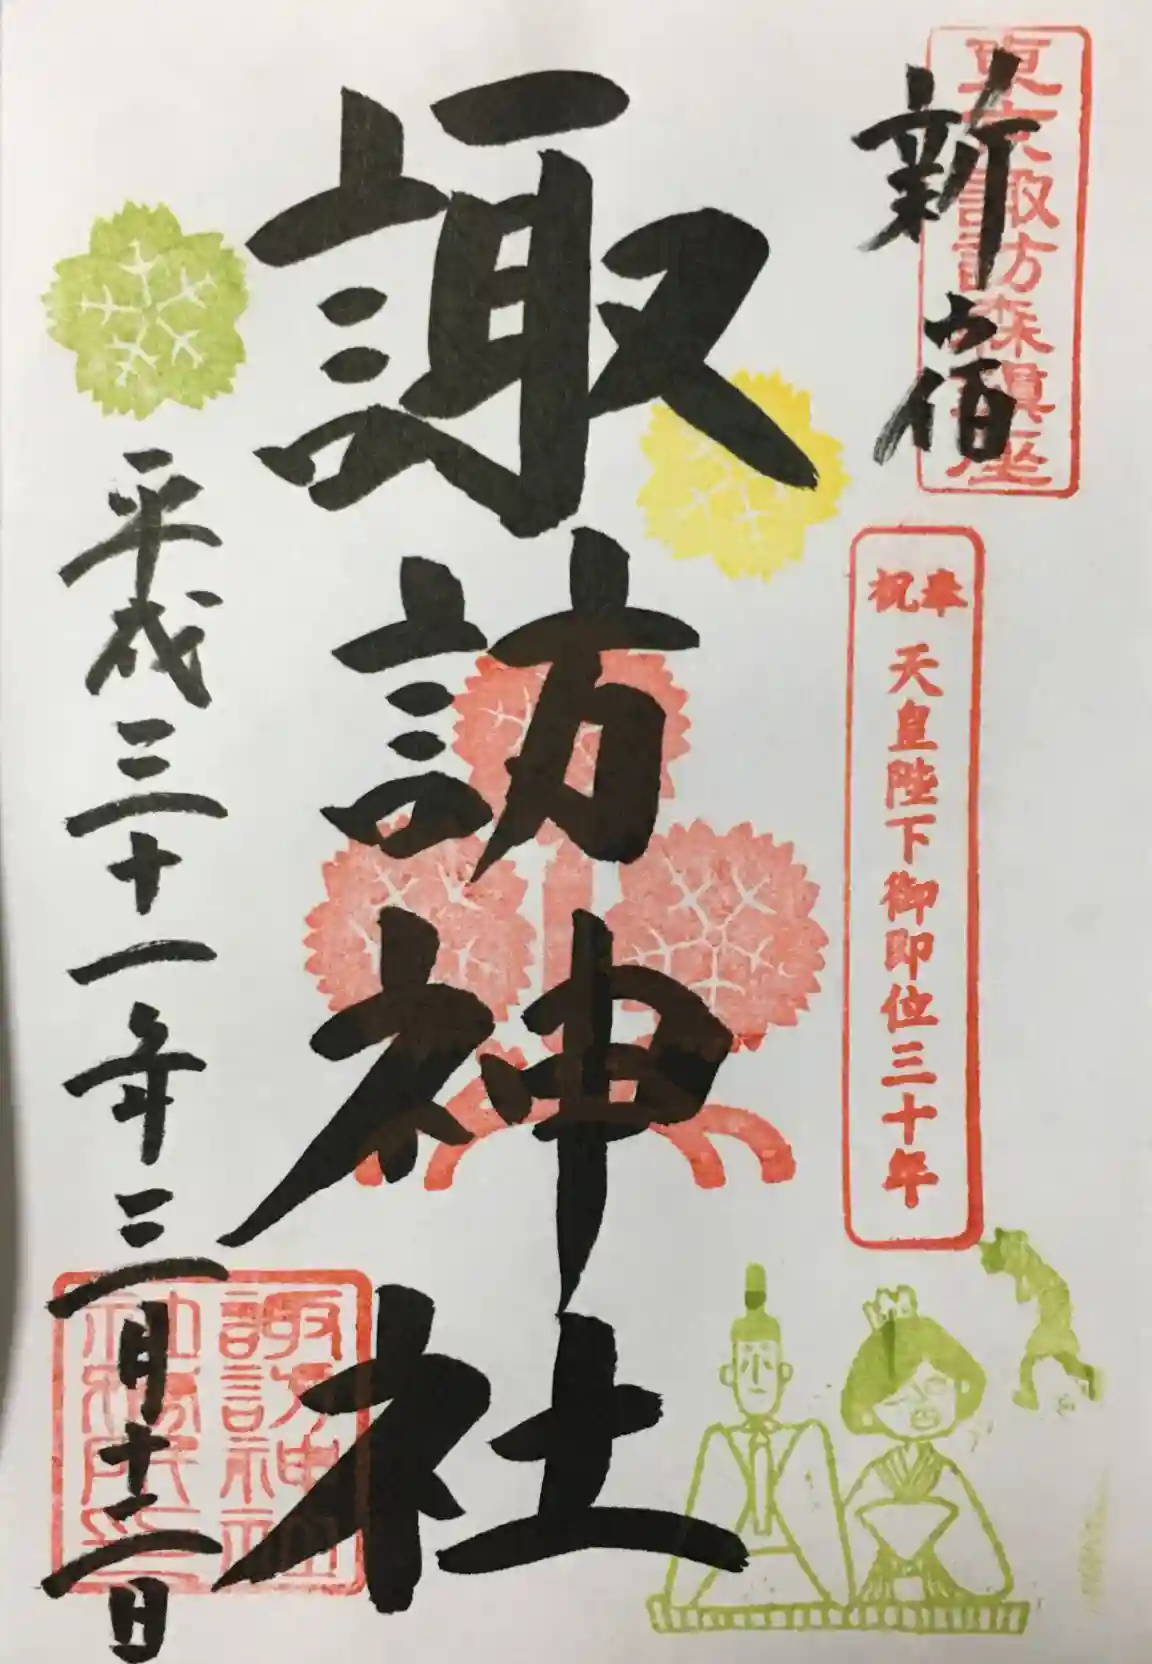 東京諏訪森鎮座
新宿
奉祝
天皇陛下御即位三十年
諏訪神社
平成三十一年三月十二日